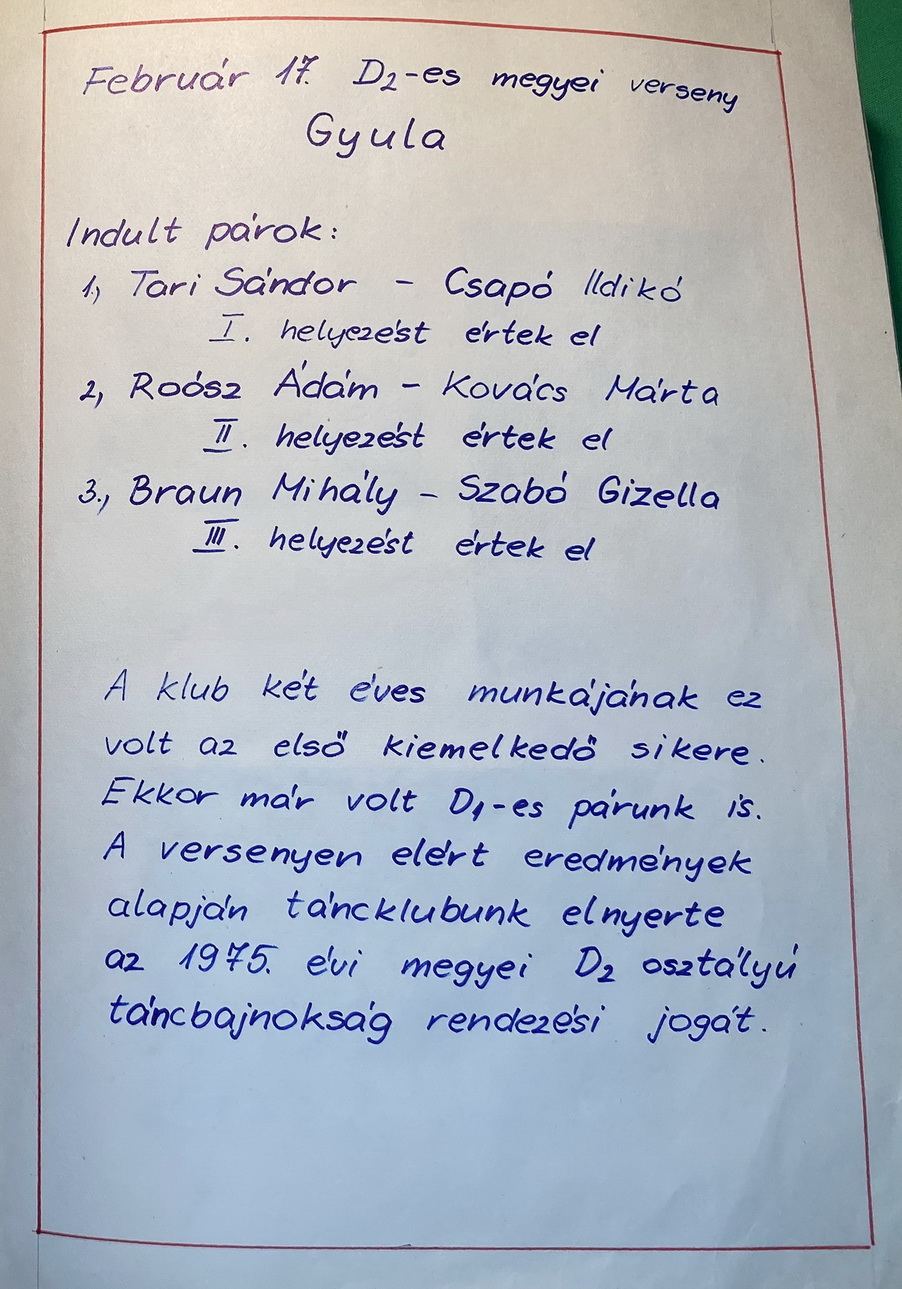 Február 17. D2-es megyei verseny
Gyula
Indult párok:
1., Tari Sándor - Csapó Ildikó
I. helyezést értek el
2, Roósz Ádám - Kovács Márta
II. helyezést értek el
3., Braun Mihály - Szabó Gizella
III. helyezést értek el
A klub két éves munkájának ez
volt az első kiemelkedő sikere.
Ekkor már volt D1-es párunk is.
A versenyen elért eredmények
alapján táncklubunk elnyerte
az 1975. évi megyei D2 osztályú
táncbajnokság rendezési jogát.